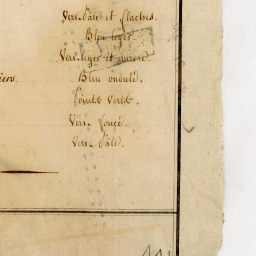 Verd Pâle et flaches.
Bleu leger.
Verd leger et aurore.
Bleu ondulé.
Pointe verte.
Verd foncé.
Verd Pâle.